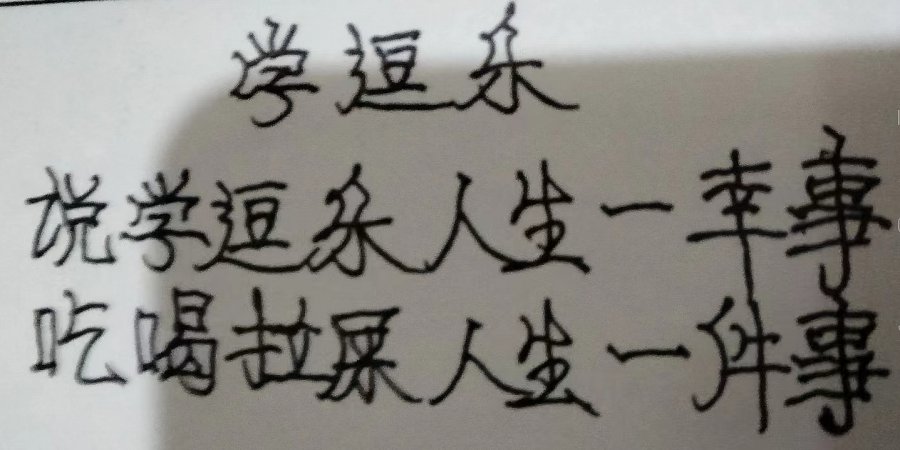 学逗乐
说学逗乐人生一幸事
吃喝拉屎人生一件事